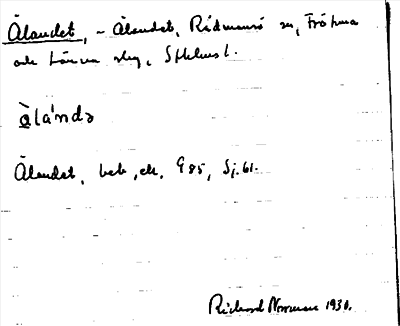 Ålandet, – Ålandet, Rådmansö sn, Frötuna
och Länna slg, Sthlms l.
å̀la'ndə
Ålandet, beb, ek. G 85, Sj. 61.
Rickard 1930.